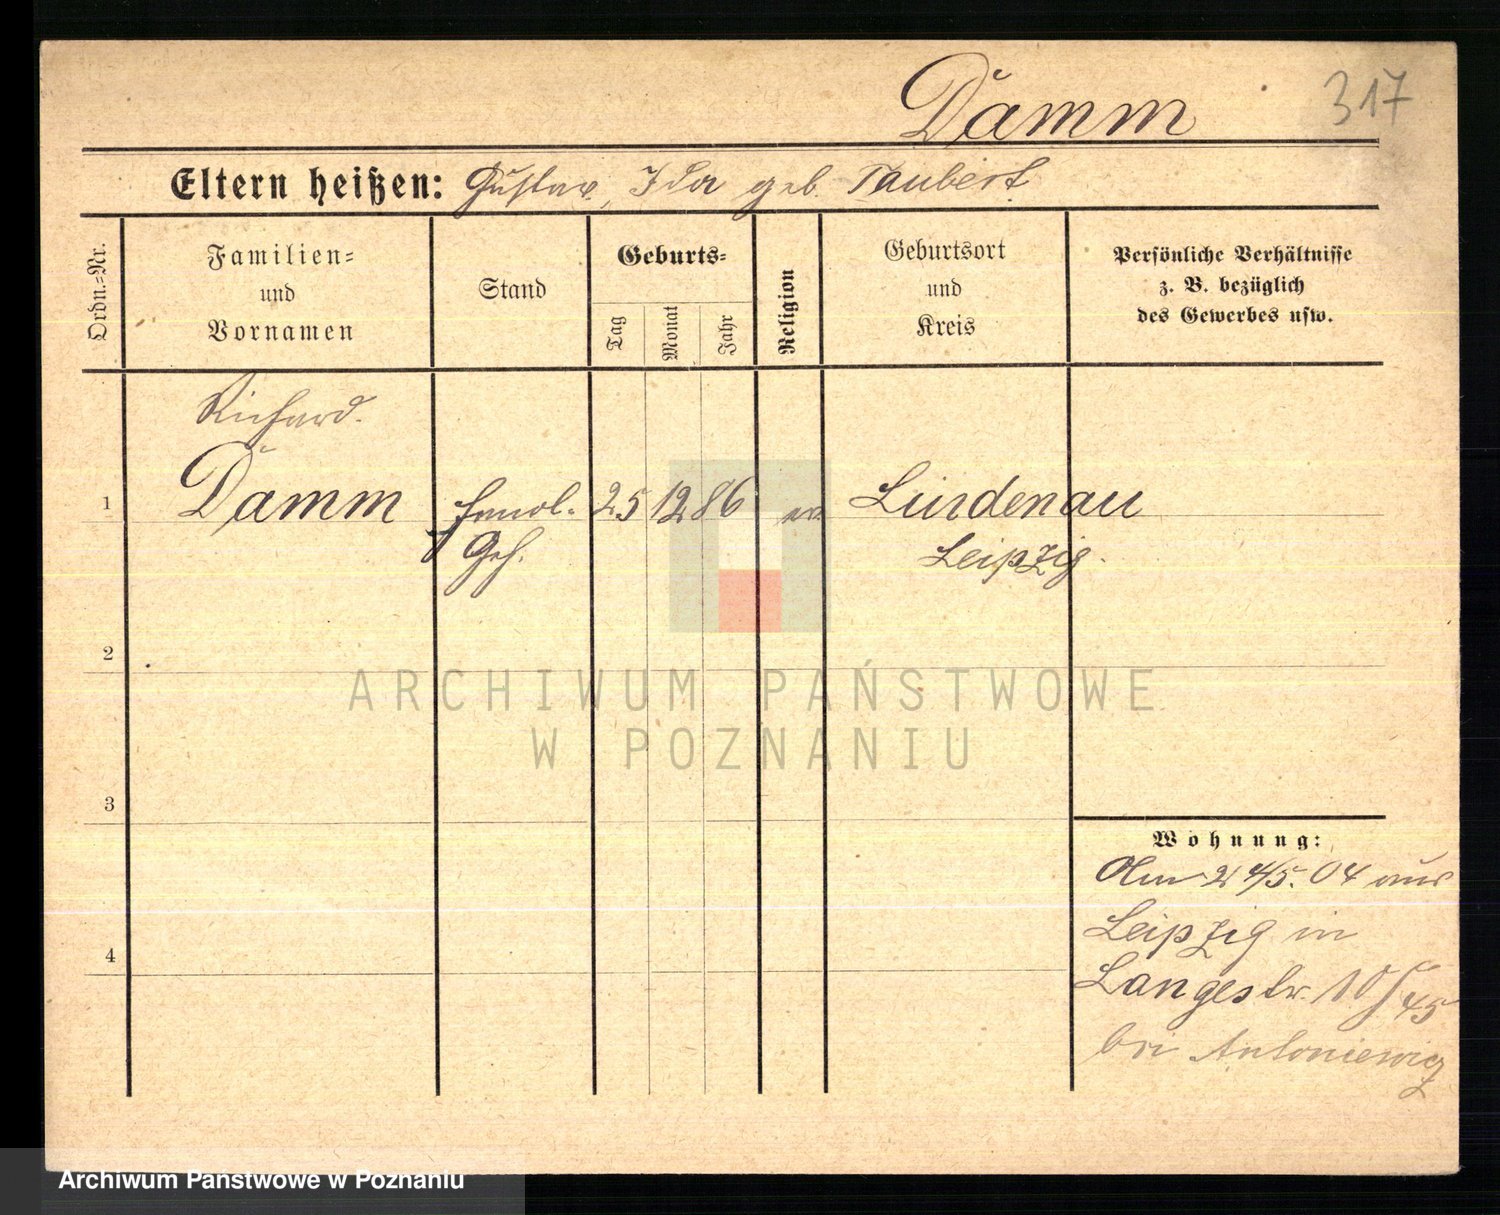 Damm
317
Eltern heißen: Gustav, Ida geb. Taubert
Ordn.-Nr.
Familien-
und
Vornamen
Stand
Geburts-
Tag
Monat
Jahr
Religion
Geburtsort
und
Kreis
Persönliche Verhältnisse
z. B. bezüglich
des Gewerbes usw.
Richard.
1 Damm 25 12 86 ev. Lindenau
Geh. Leipzig.
2
ARCHIWUM PAŃSTWOWE
W POZNANIU
3
Wohnung:
Am 24/5. 04 aus
Leipzig in
Langestr. 10/
bei Antoniewicz
4
Archiwum Państwowe w Poznaniu